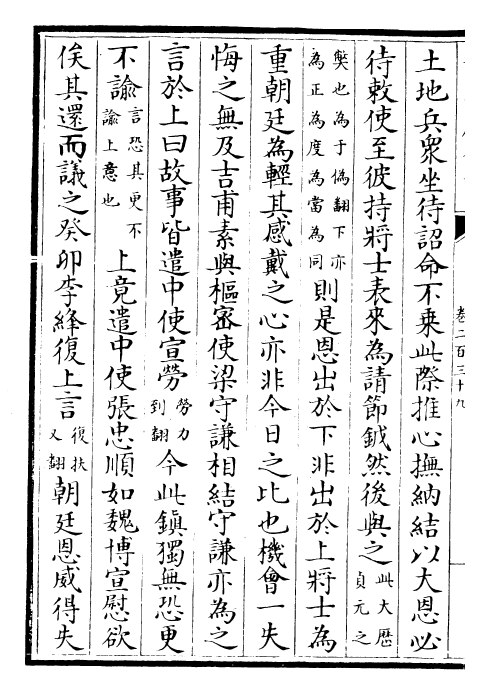 土地兵衆坐待詔命不乗此際推心撫納結以大恩必
待敕使至彼持將士表來為請節鉞然後與之此大歷貞元之
弊也為于偽翻下亦為正為度為當為同則是恩出於下非出於上將士為
重朝廷為輕其感戴之心亦非今日之比也機會一失
悔之無及吉甫素與樞密使梁守謙相結守謙亦為之
言於上曰故事皆遣中使宣勞勞力到翻今此鎮獨無恐更
不諭言恐其更不諭上意也上竟遣中使張忠順如魏博宣慰欲
俟其還而議之癸卯李絳復上言復扶又翻朝廷恩威得失
卷二百三十九